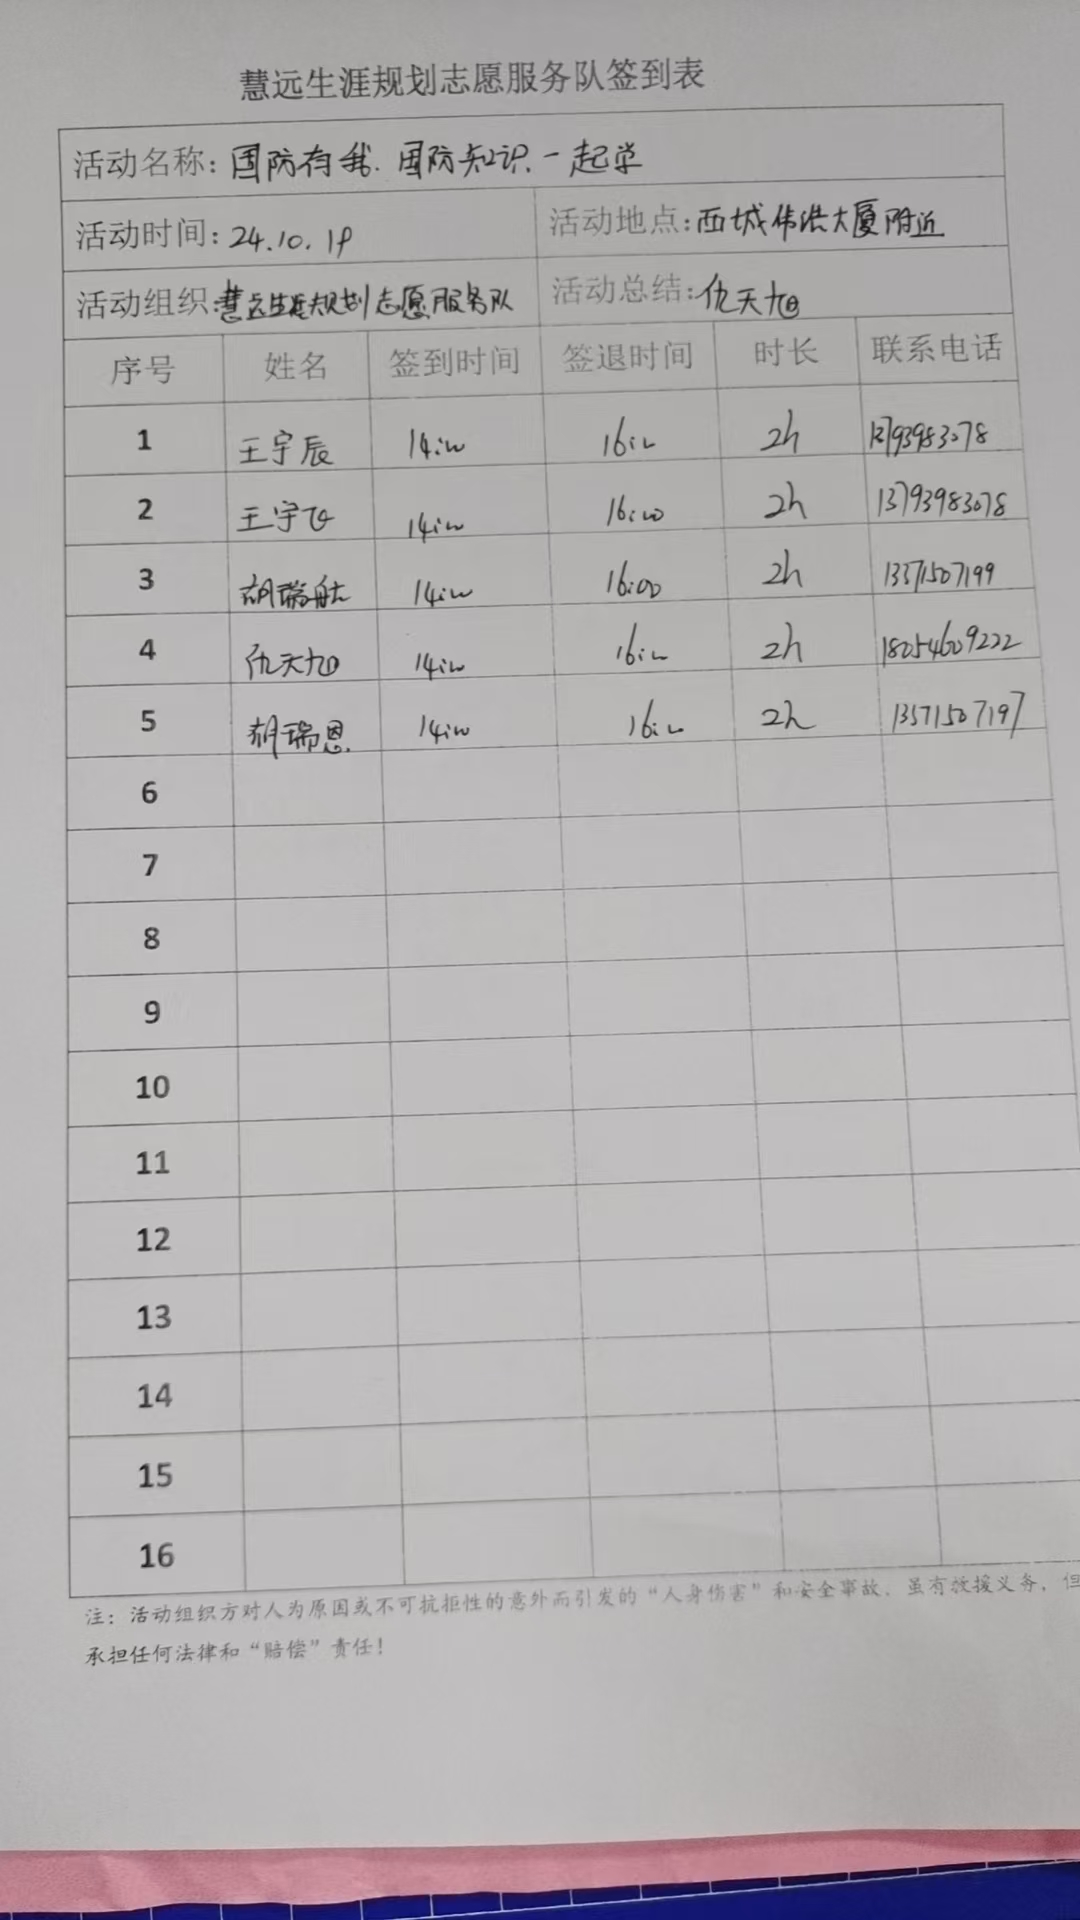 慧远生涯规划志愿服务队签到表
活动名称: 国防有我. 国防知识.一起学
活动时间: 24.10.19 活动地点: 西城伟浩大厦附近
活动组织: 慧远生涯规划志愿服务队 活动总结: 仇天旭
序号 姓名 签到时间 签退时间 时长 联系电话
1 王宇辰 14:00 16:00 2h 13793983078
2 王宇飞 14:00 16:00 2h 13793983078
3 胡瑞航 14:00 16:00 2h 13371507199
4 仇天旭 14:00 16:00 2h 18054609222
5 胡瑞恩 14:00 16:00 2h 13371507197
6
7
8
9
10
11
12
13
14
15
16
注: 活动组织方对人为原因或不可抗拒性的意外而引发的“人身伤害”和安全事故, 虽有救援义务, 但
承担任何法律和“赔偿”责任!